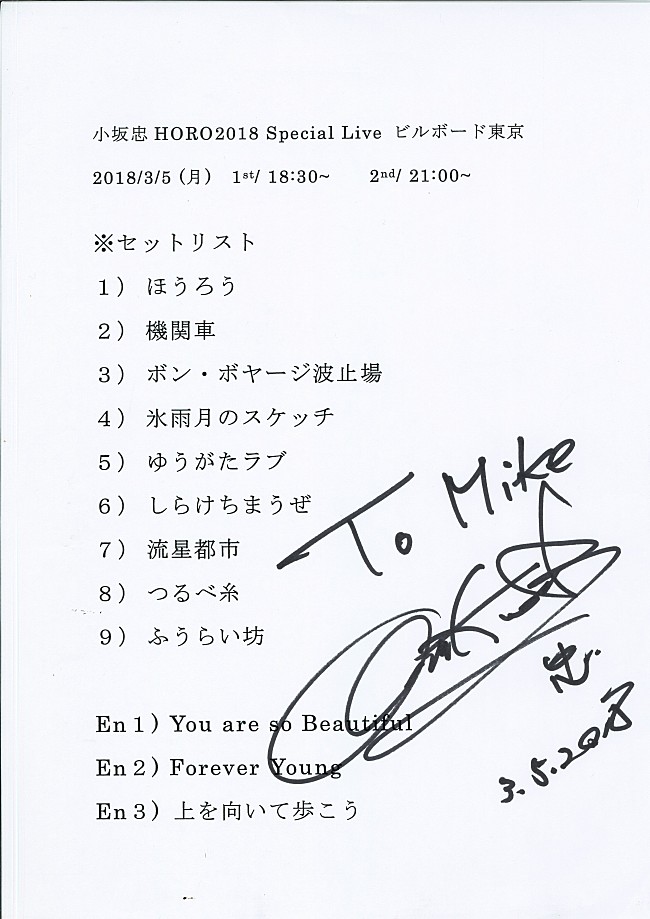 小坂忠 HORO2018 Special Live ビルボード東京
2018/3/5 (月) 1st/ 18:30~ 2nd/ 21:00~
※セットリスト
1) ほうろう
2) 機関車
3) ボン・ボヤージ波止場
4) 氷雨月のスケッチ
5) ゆうがたラブ
6) しらけちまうぜ
7) 流星都市
8) つるべ糸
9) ふうらい坊
To Mike
忠
3.5.2018
En1) You are so Beautiful
En2) Forever Young
En3) 上を向いて歩こう